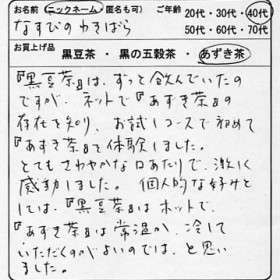 お名前(ニックネーム・匿名も可) ご年齢 20代・30代・40代
なすびのわきばら 50代・60代・70代
お買上げ品 黒豆茶・黒の五穀茶・あずき茶
『黒豆茶』は、ずっと飲んでいたの
ですが、ネットで『あずき茶』の
存在を知り、お試しコースで初めて
『あずき茶』を体験しました。
とてもさわやかな口あたりで、激しく
感動しました。個人的な好みと
しては、『黒豆茶』はホットで、
『あずき茶』は常温か、冷して
いただくのがよいのでは、と思い
ました。